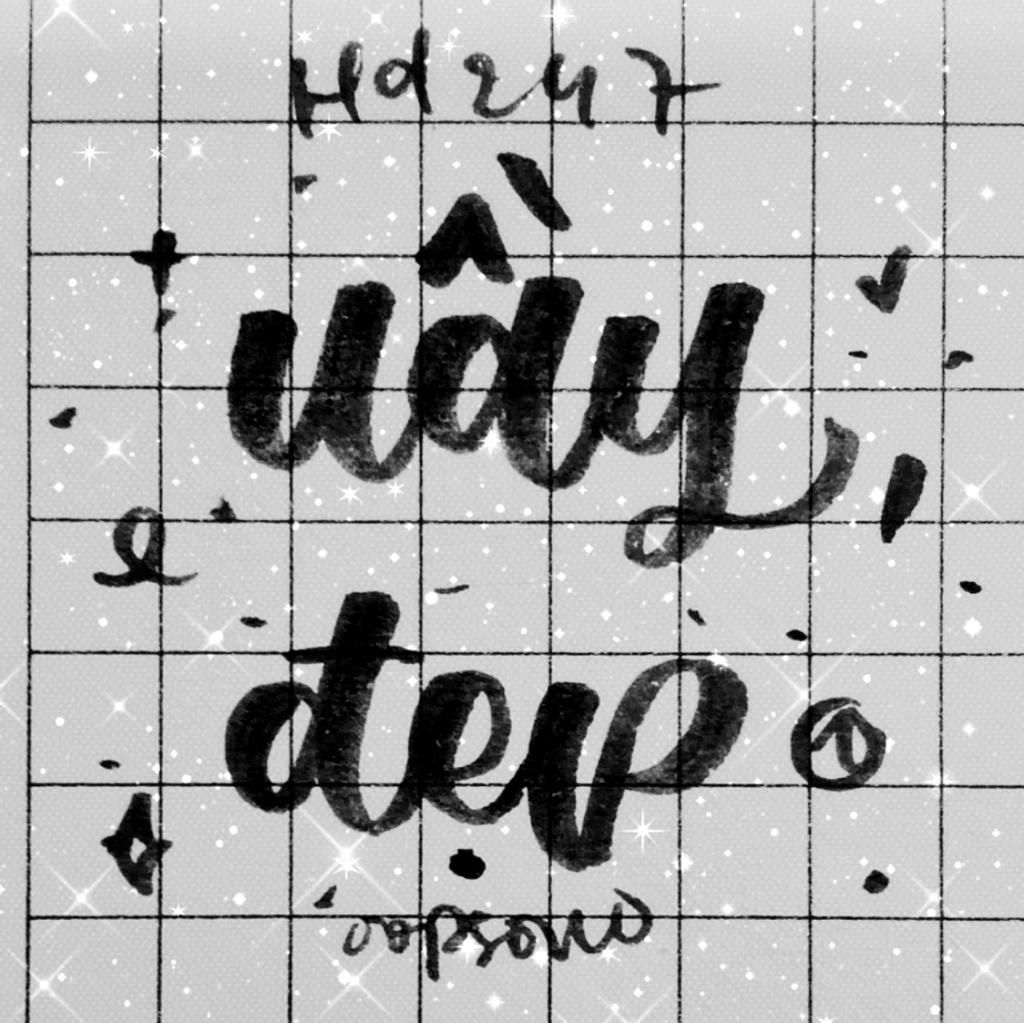 Hd247
uầy,
đẹp